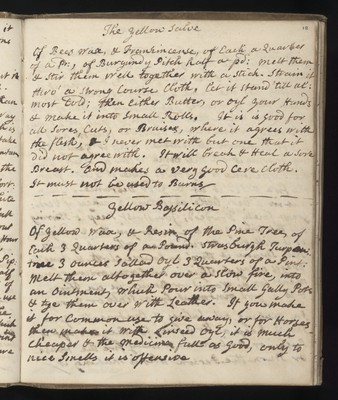 The Yellow Salve
Of Bees wax, & Frankincense, of Each a Quarter
of a Pd:, of Burgundy Pitch half a pd: melt them
& Stir them well together with a Stick. Strain it
thro' a Strong Course Cloth, Let it stand till al:
most Cold; then Either Butter, or oyl your Hands
& make it into Small Rolls. It is is good for
all Sores, Cuts, or Bruises, where it agrees with
the flesh, & I never met with but one that it
did not agree with. It will break & Heal a Sore
Breast. And makes a very good Cere Cloth.
It must not be used to Burns
Yellow Basilicon
Of Yellow Wax, & Resin of the Pine Tree, of
Each 3 Quarters of a Pound. Strasburgh Turpen
tree 3 ounces Sallad Oyl 3 Quarters of a Pint.
Melt them altogether over a Slow fire, into
an Ointment, which Pour into Small Gally Pots
& tye them over with Leather. If you make
it for Common use to give away, or for Horses
then make it with Linseed oyl, it is much
Cheaper & the medicine full as Good, only to
nice Smells it is offensive